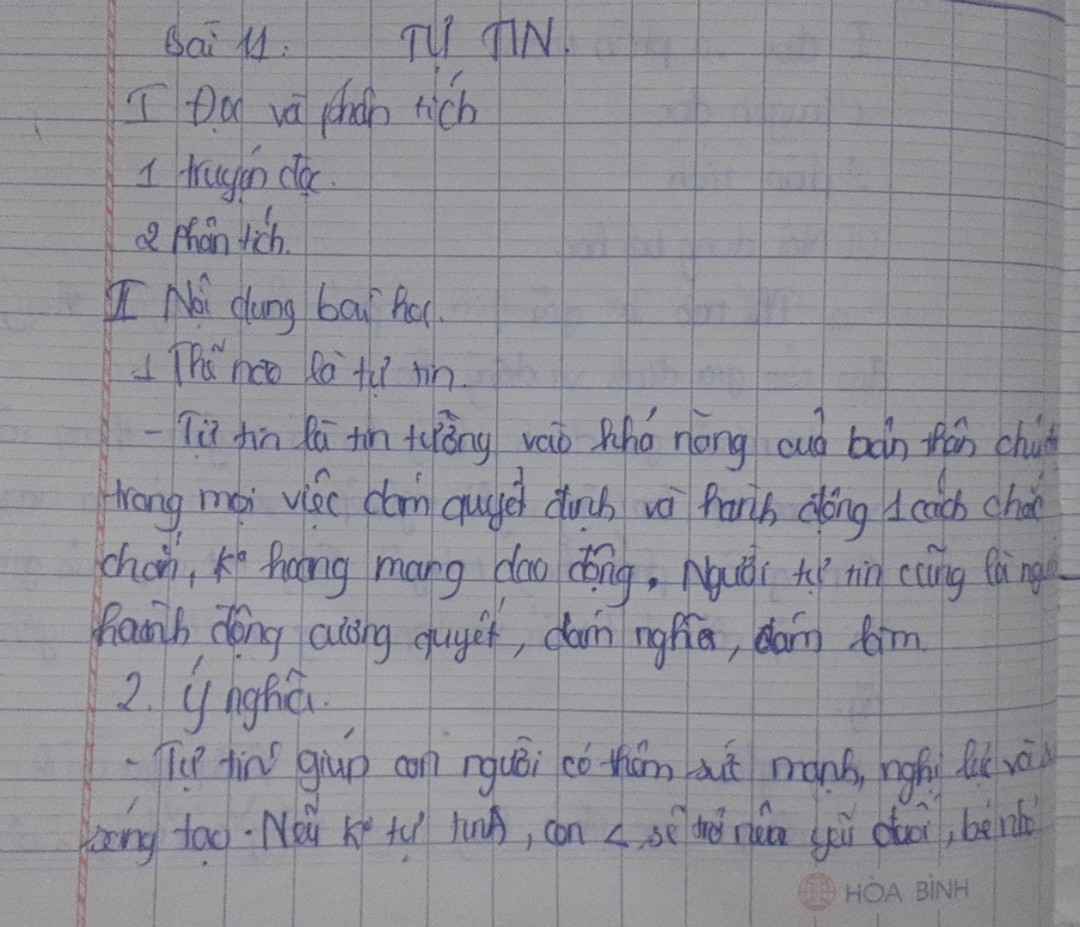 Bài 11: TỰ TIN.
I Đọc và phân tích
1 truyện đọc.
2 Phân tích.
II Nội dung bài học.
1 Thế nào là tự tin.
- Tự tin là tin tưởng vào khả năng của bản thân chủ
trong mọi việc dám quyết định và hành động 1 cách chắc
chắn, ko hoang mang dao động. Người tự tin cũng là ng
hành động cương quyết, dám nghĩ, dám làm
2. Ý nghĩa.
- Tự tin giúp con người có thêm sức mạnh, nghị lực và
sáng tạo. Nếu ko tự tin, con < sẽ trở nên yếu đuối, bé nhỏ
HÒA BÌNH